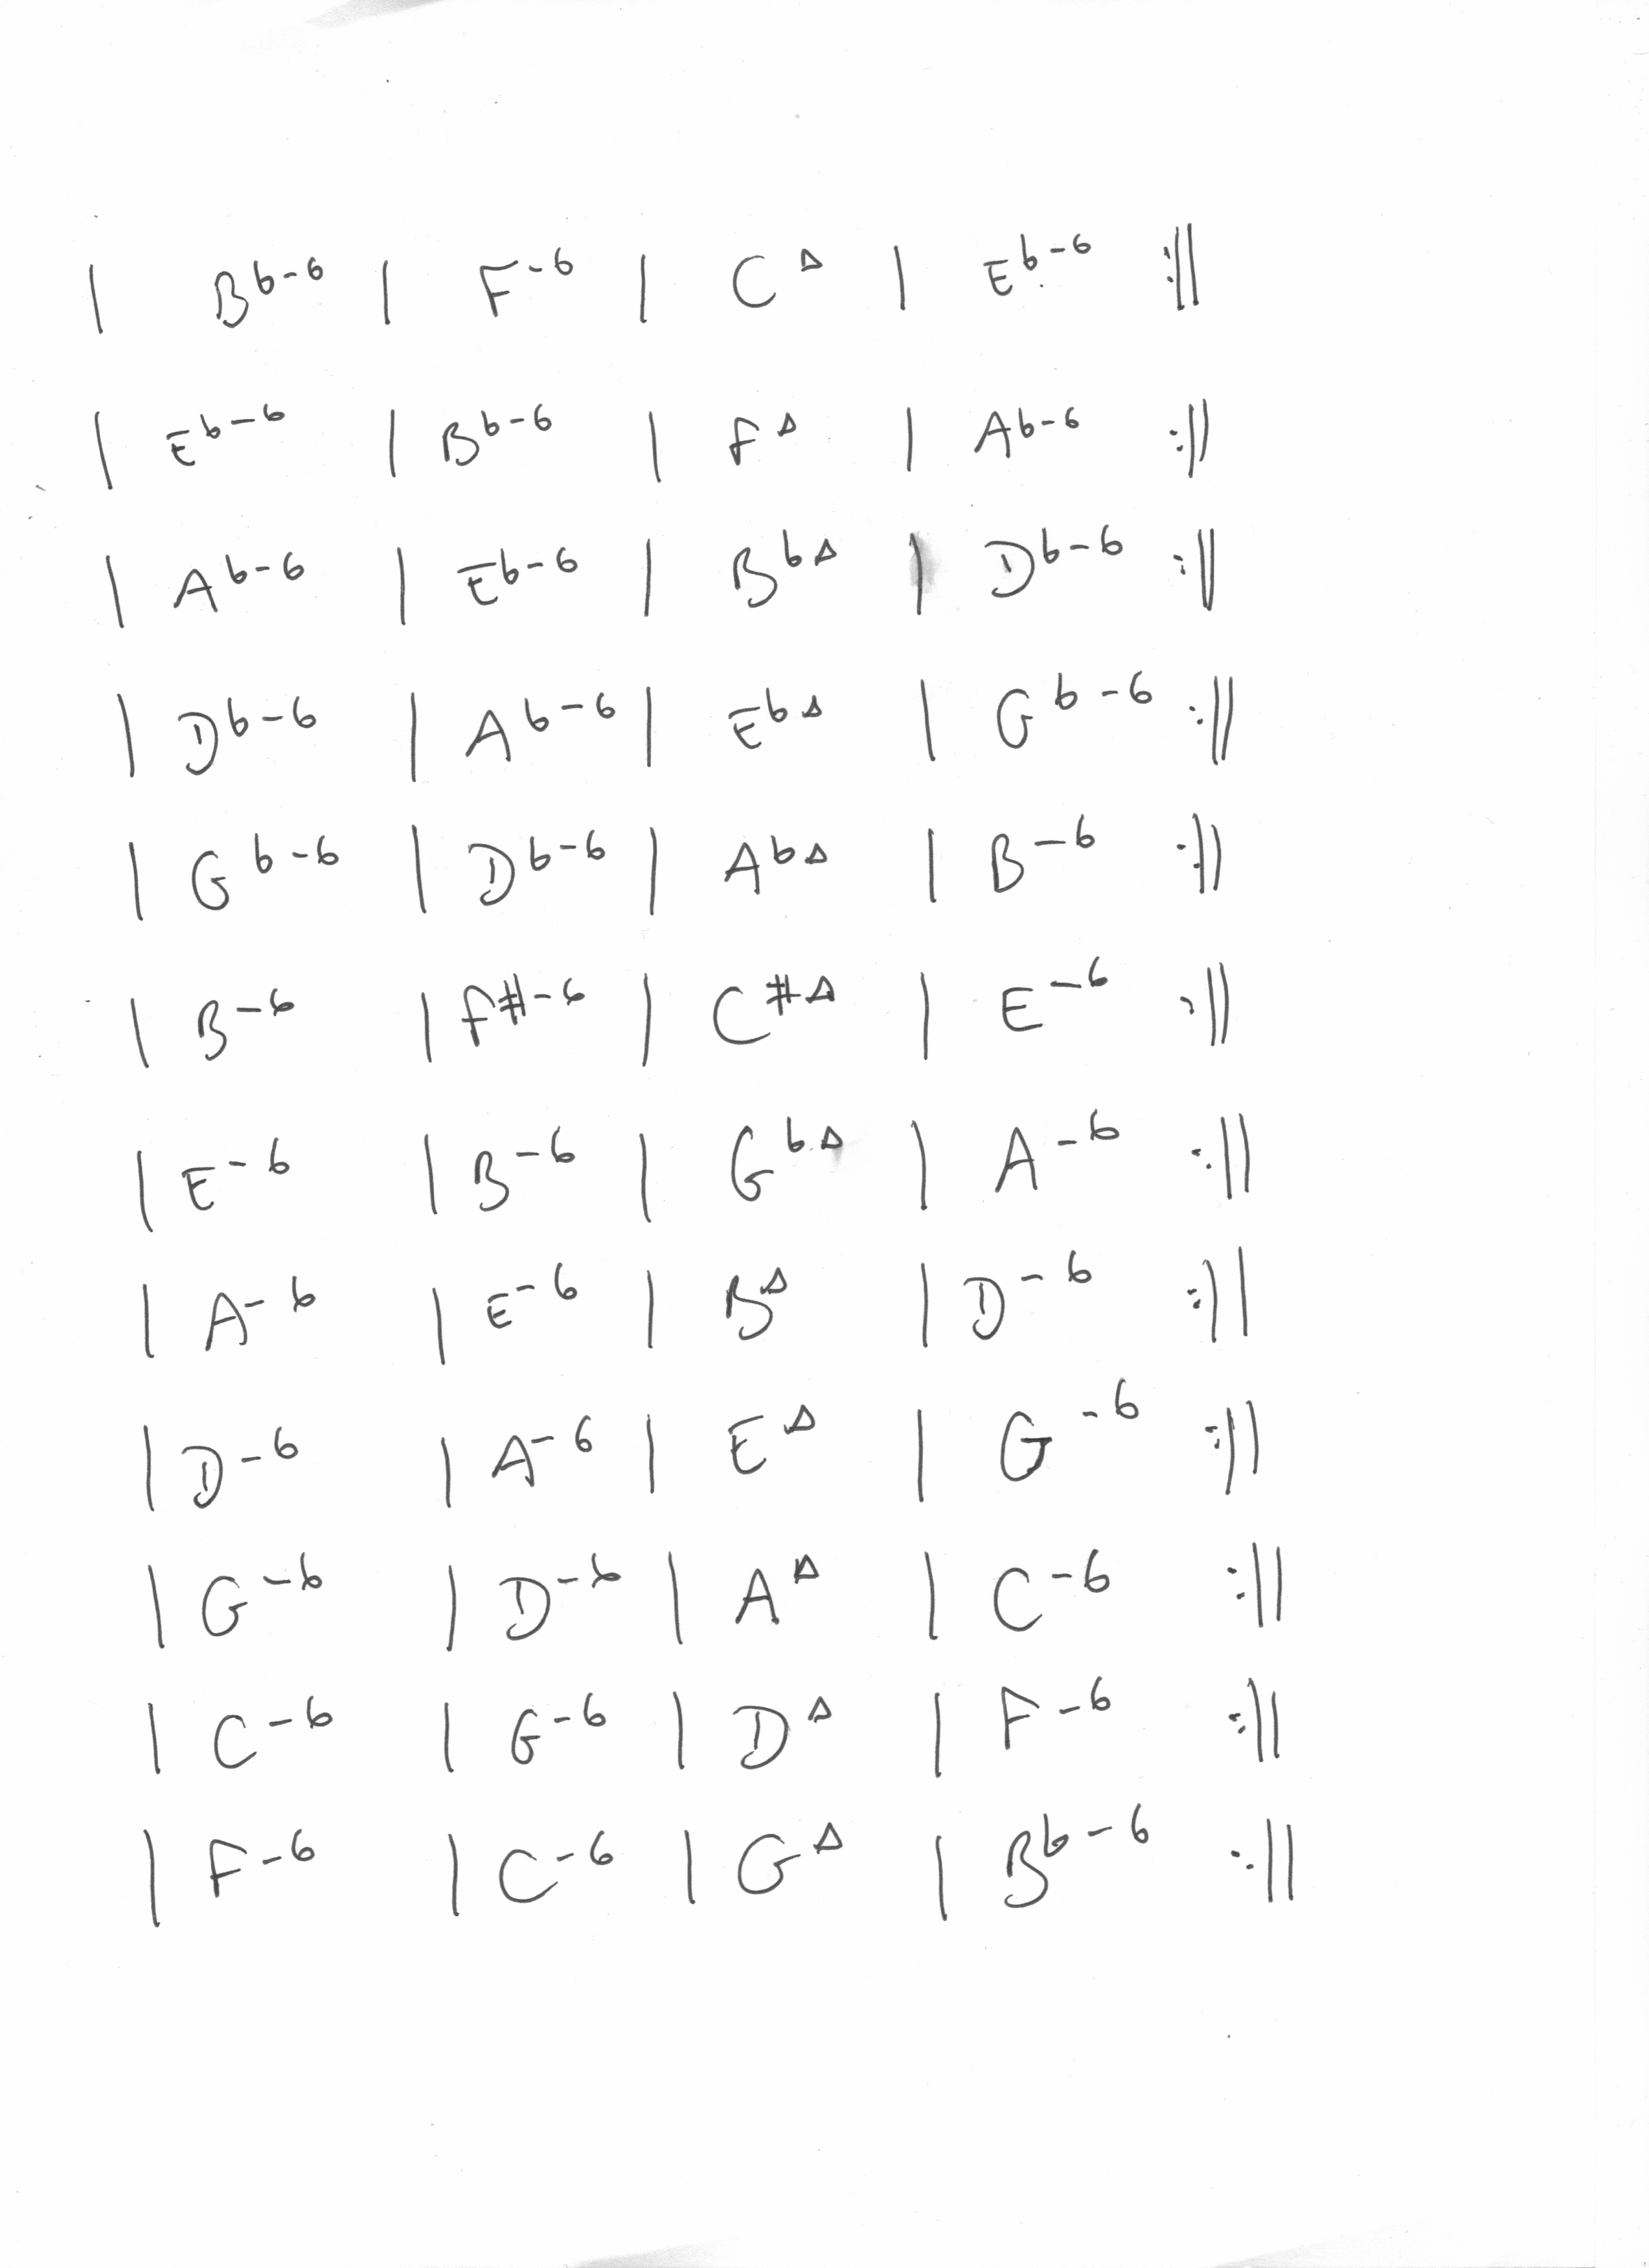 | Bb-6 | F-6 | CΔ | Eb-6 :||
| Eb-6 | Bb-6 | FΔ | Ab-6 :||
| Ab-6 | Eb-6 | BbΔ | Db-6 :||
| Db-6 | Ab-6 | EbΔ | Gb-6 :||
| Gb-6 | Db-6 | AbΔ | B-6 :||
| B-6 | F#-6 | C#Δ | E-6 :||
| E-6 | B-6 | GbΔ | A-6 :||
| A-6 | E-6 | BΔ | D-6 :||
| D-6 | A-6 | EΔ | G-6 :||
| G-6 | D-6 | AΔ | C-6 :||
| C-6 | G-6 | DΔ | F-6 :||
| F-6 | C-6 | GΔ | Bb-6 :||